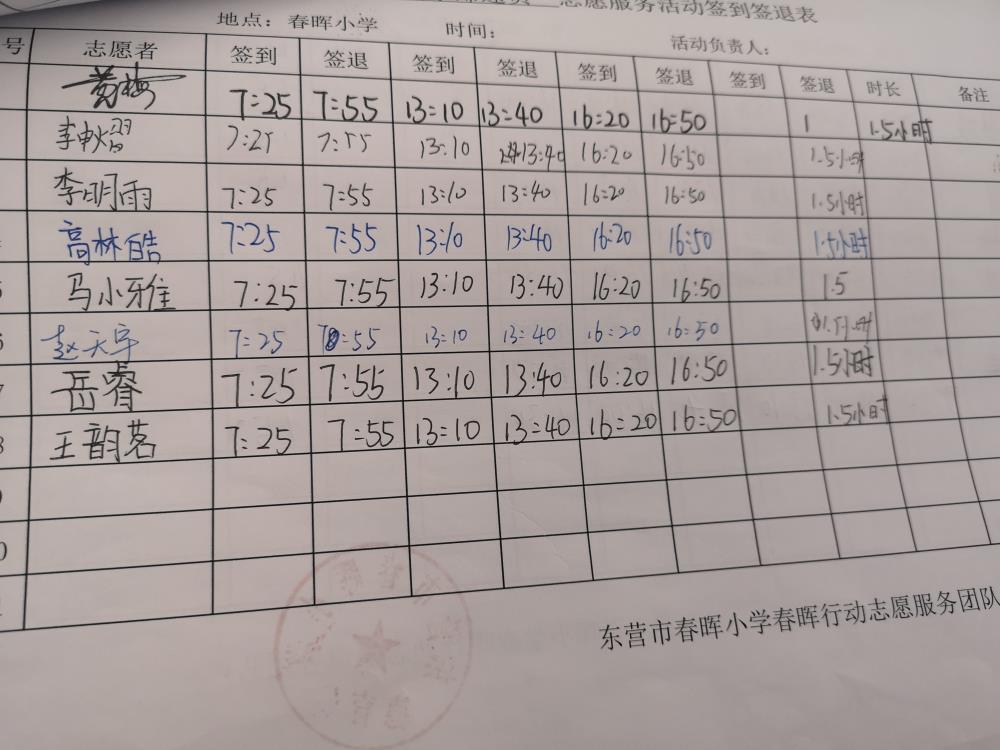 志愿服务活动签到签退表
地点：春晖小学 时间： 活动负责人：
号 志愿者 签到 签退 签到 签退 签到 签退 签到 签退 时长 备注
黄梅 7:25 7:55 13:10 13:40 16:20 16:50 1 1.5小时
李 7:25 7:55 13:10 13:40 16:20 16:50 1.5小时
李明雨 7:25 7:55 13:10 13:40 16:20 16:50 1.5小时
高林皓 7:25 7:55 13:10 13:40 16:20 16:50 1.5小时
马小雅 7:25 7:55 13:10 13:40 16:20 16:50 1.5
赵天宇 7:25 7:55 13:10 13:40 16:20 16:50 1.5小时
7 岳睿 7:25 7:55 13:10 13:40 16:20 16:50 1.5小时
8 王韵茗 7:25 7:55 13:10 13:40 16:20 16:50 1.5小时
东营市春晖小学春晖行动志愿服务团队